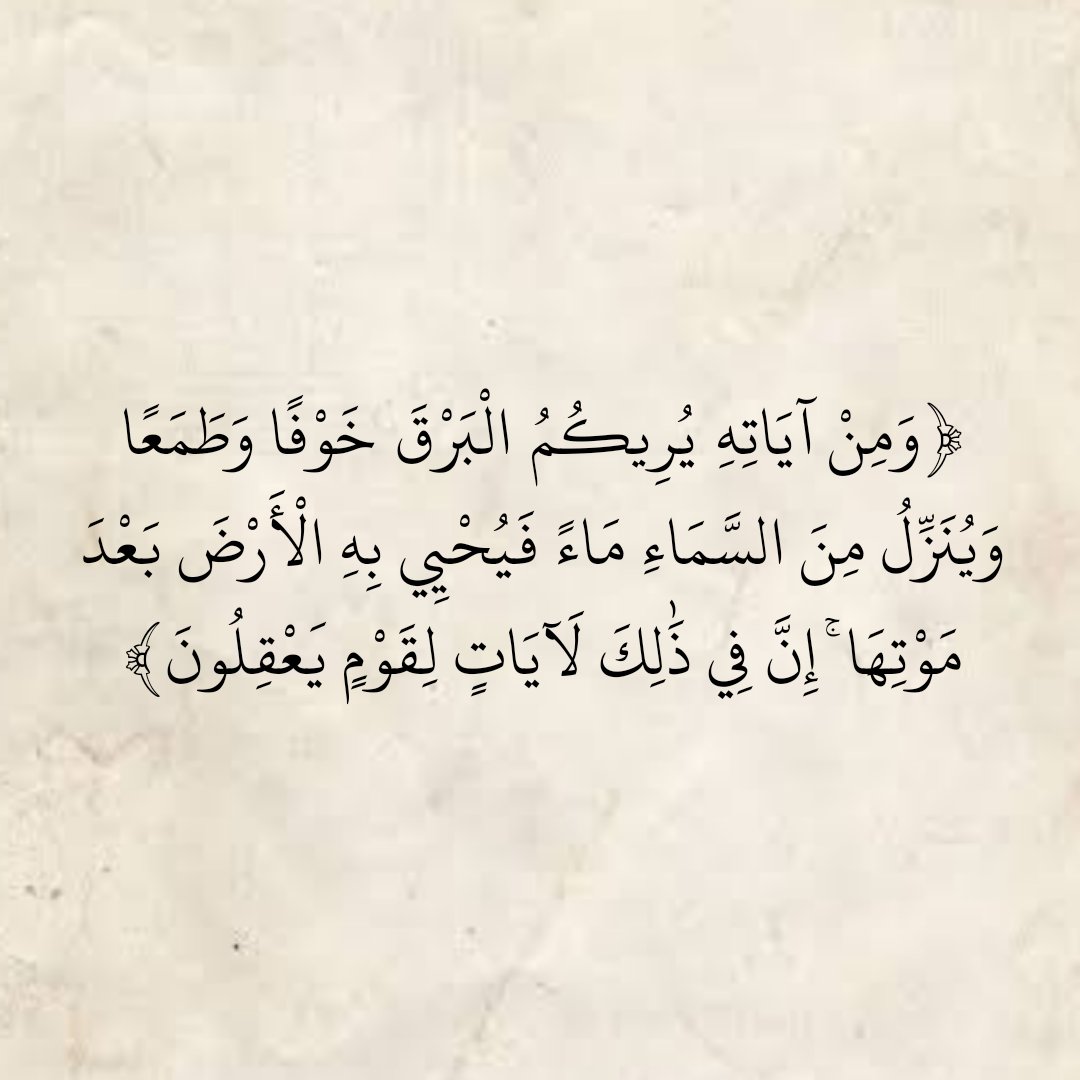 ﴿وَمِنْ آيَاتِهِ يُرِيكُمُ الْبَرْقَ خَوْفًا وَطَمَعًا
وَيُنَزِّلُ مِنَ السَّمَاءِ مَاءً فَيُحْيِي بِهِ الْأَرْضَ بَعْدَ
مَوْتِهَا ۚ إِنَّ فِي ذَٰلِكَ لَآيَاتٍ لِقَوْمٍ يَعْقِلُونَ﴾